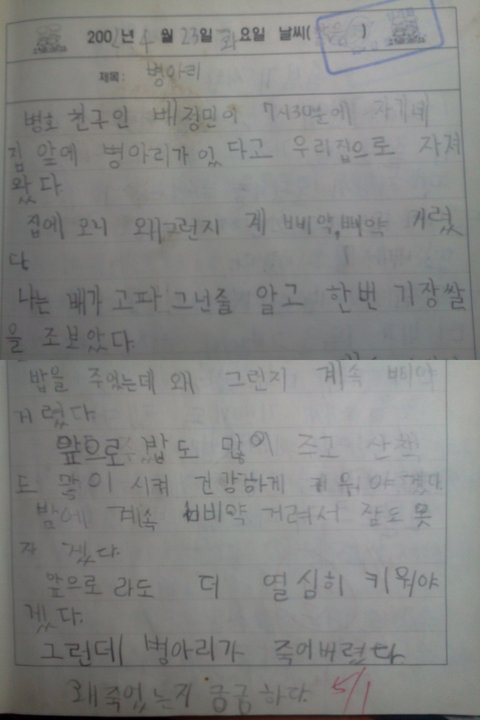 2002년 4월 23일 화요일 날씨( )
제목: 병아리
병호 친구인 배정민이 7시30분에 자기네
집 앞에 병아리가 있다고 우리집으로 가져
왔다
집에 오니 왜그런지 계 삐약,삐약 거렸
다
나는 배가 고파 그넌줄 알고 한번 기장쌀
을 조보았다.
밥을 주었는데 왜 그런지 계속 삐약
거렸다.
앞으로 밥도 많이 주고 산책
도 많이 시켜 건강하게 키워야 겠다.
밤에 계속 삐약 거려서 잠도 못
자 겠다.
앞으로 라도 더 열심히 키워야
겠다.
그런데 병아리가 죽어버렸다
왜죽었는지 궁금하다. 5/1